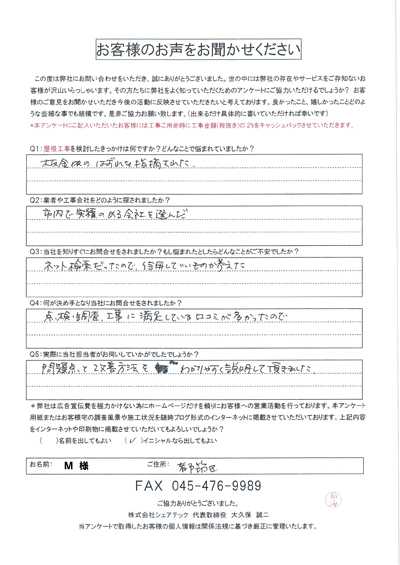 お客様のお声をお聞かせください
この度は弊社にお問い合わせをいただき、誠にありがとうございました。世の中には弊社の存在やサービスをご存知ないお
客様が沢山いらっしゃいます。その方たちに弊社をよく知っていただくためのアンケートにご協力いただけるでしょうか？ お客
様のご意見をお聞かせいただき今後の活動に反映させていただきたいと考えております。良かったこと、嬉しかったことどのよ
うな些細な事でも結構です。是非ご協力お願い致します。（出来るだけ具体的に書いていただければ幸いです）
*本アンケートにご記入いただいたお客様には工事ご用命時に工事金額（税抜き）の2%をキャッシュバックさせていただきます。
Q1：屋根工事を検討したきっかけは何ですか？どんなことで悩まれていましたか？
板金の はがれを指摘された。
Q2：業者や工事会社をどのように探されましたか？
市内で実績のある会社を選んだ
Q3：当社を知りすぐにお問合せをされましたか？もし悩まれたとしたらどんなことがご不安でしたか？
ネット検索だったので、信用していいものか考えた
Q4：何が決め手となり当社にお問合せをされましたか？
点検・調査、工事に満足している口コミが多かったので
Q5：実際に当社担当者がお伺いしていかがでしたでしょうか？
問題点、と改善方法を わかりやすく説明して頂きました。
*弊社は広告宣伝費を極力かけない為にホームページだけを頼りにお客様への営業活動を行っております。本アンケート
用紙またはお客様宅の調査風景や施工状況を随時ブログ形式のインターネットに掲載させていただいております。上記内容
をインターネットや印刷物に掲載させていただいてもよろしいでしょうか？
（ ）名前を出してもよい （✓）イニシャルなら出してもよい
お名前： M 様 ご住所： 都筑区
FAX 045-476-9989
ご協力ありがとうございました。
株式会社シェアテック 代表取締役 大久保 誠二
当アンケートで取得したお客様の個人情報は関係法規に基づき厳正に管理いたします。